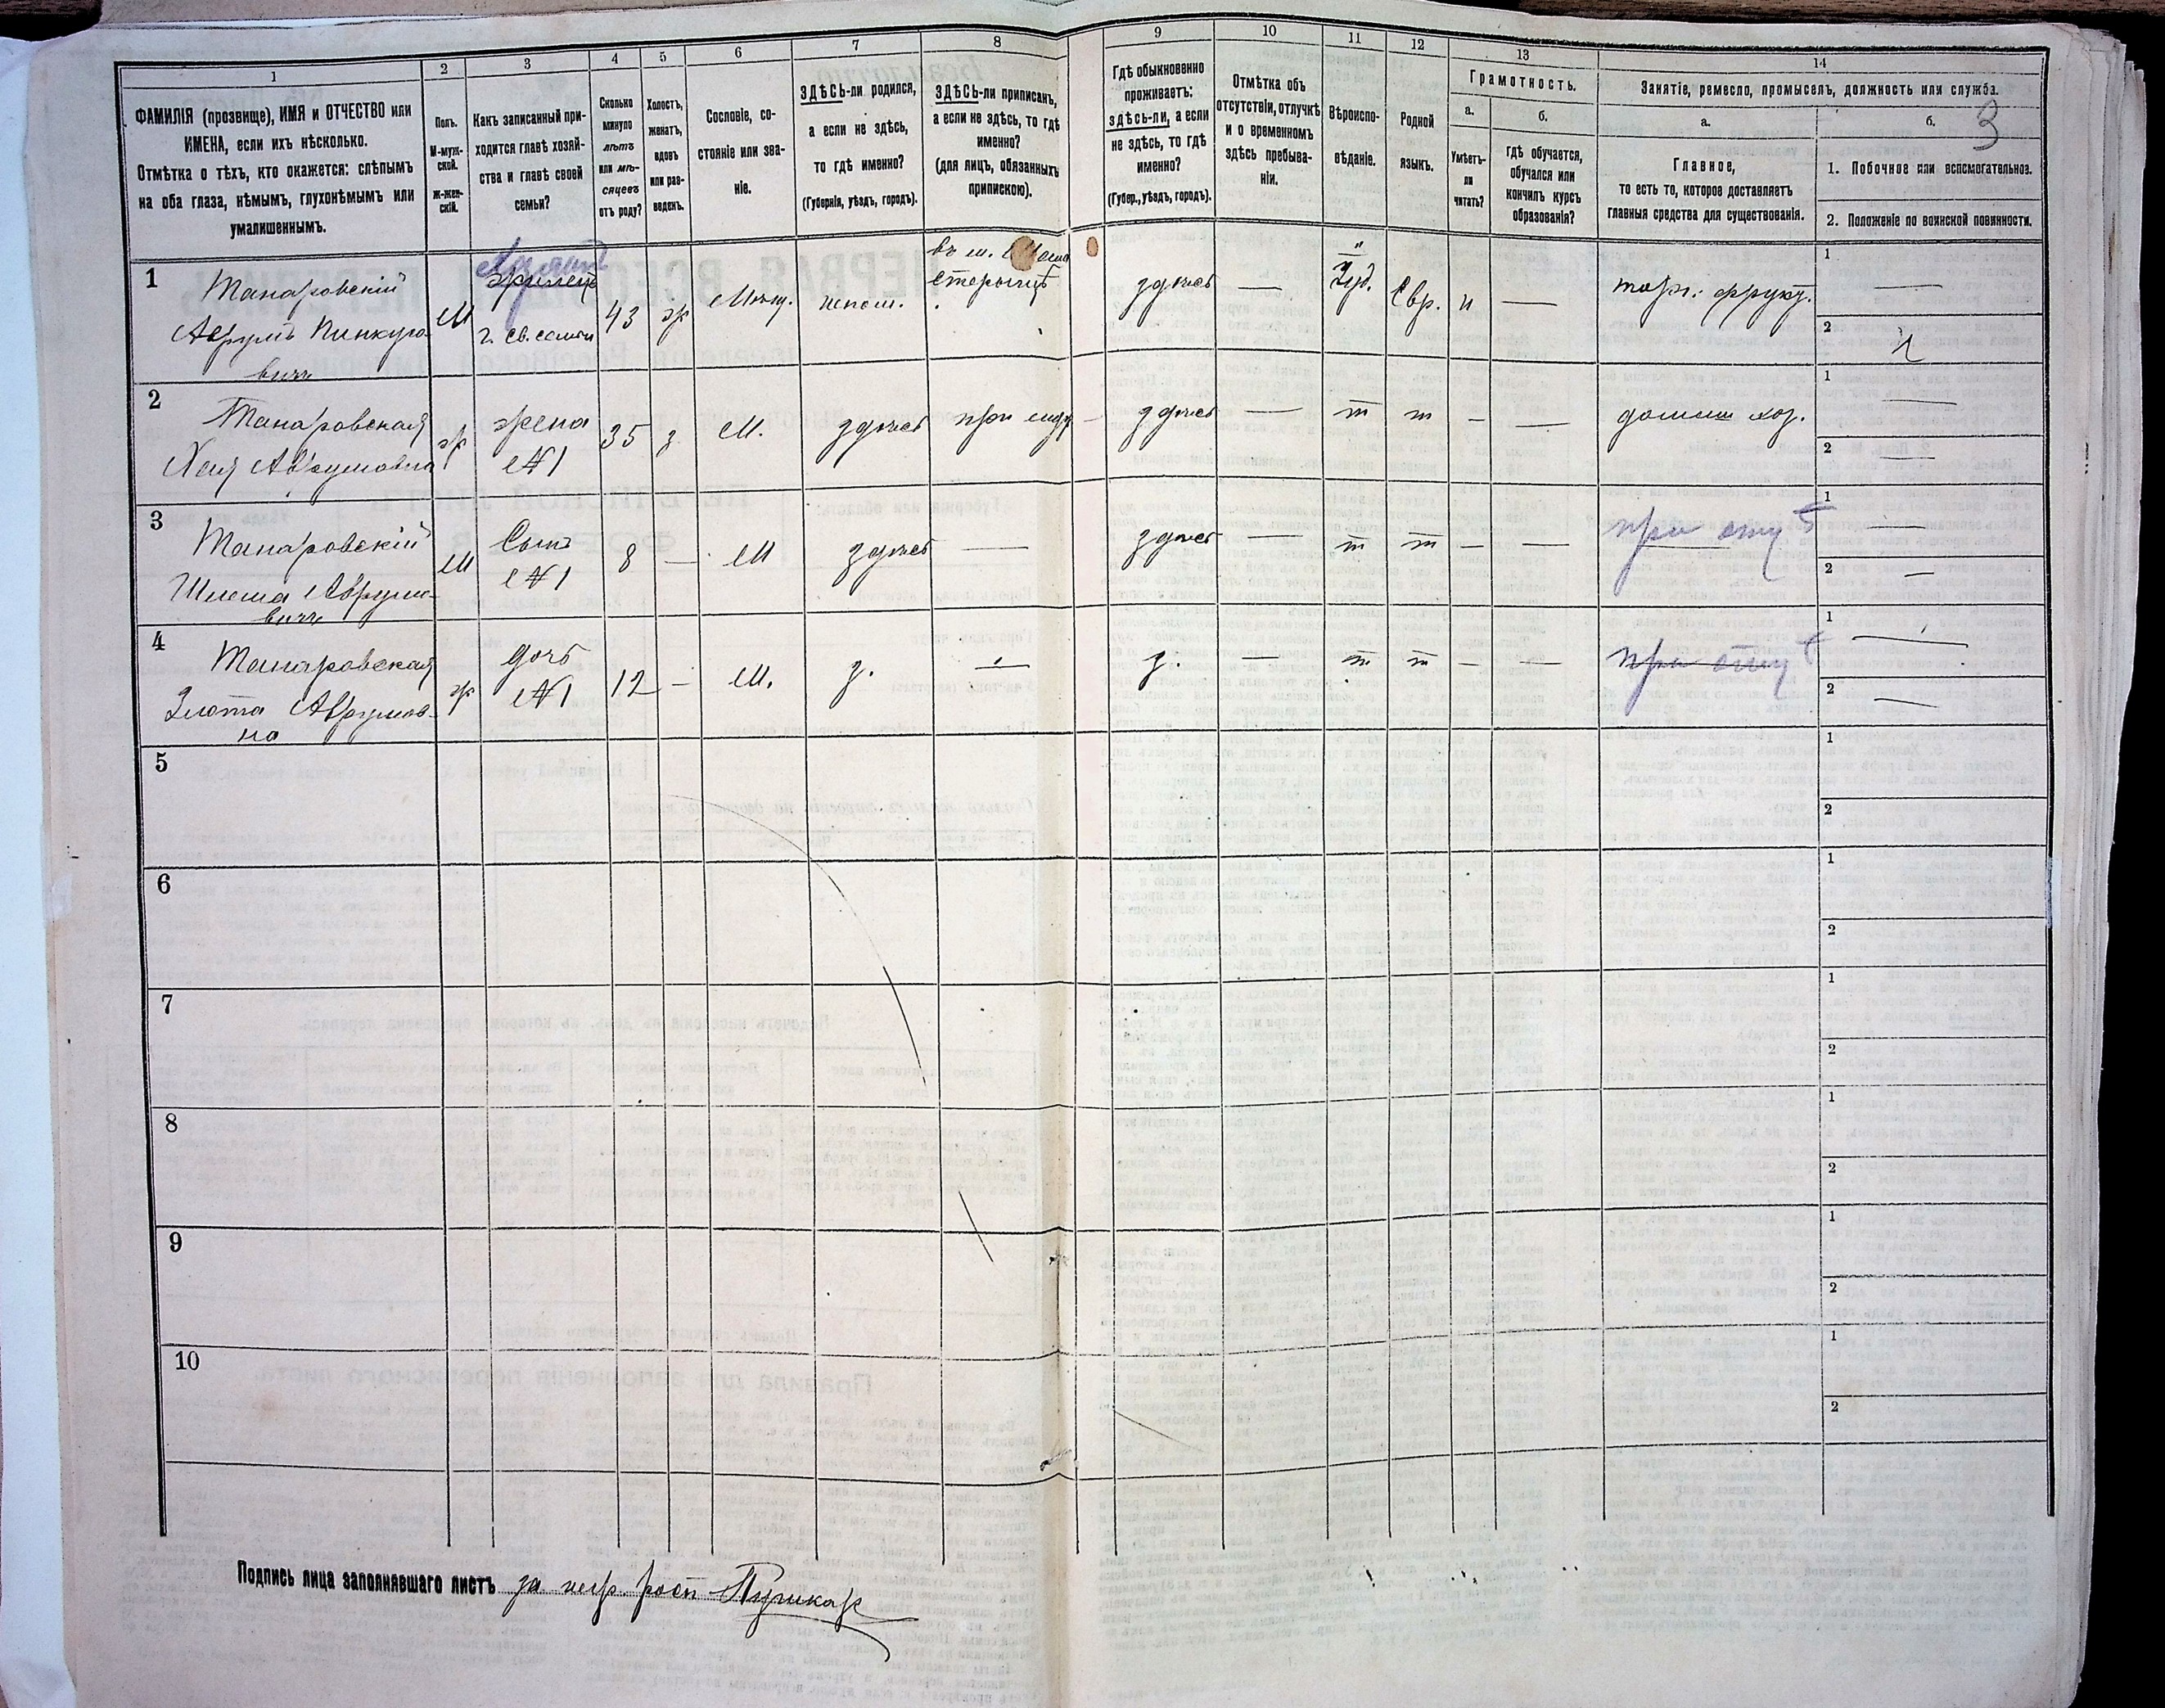 1
2
3
4
5
6
7
8
9
10
11
12
13
14
ФАМИЛІЯ (прозвище), ИМЯ и ОТЧЕСТВО или
ИМЕНА, если ихъ нѣсколько.
Отмѣтка о тѣхъ, кто окажется: слѣпымъ
на оба глаза, нѣмымъ, глухонѣмымъ или
умалишеннымъ.
Полъ.
М-муж-
ской.
Ж-жен-
скій.
Какъ записанный при-
ходится главѣ хозяй-
ства и главѣ своей
семьи?
Сколько
минуло
лѣтъ
или мѣ-
сяцевъ
отъ роду?
Холостъ,
женатъ,
вдовъ
или раз-
веденъ.
Сословіе, со-
стояніе или зва-
ніе.
ЗДѢСЬ-ли родился,
а если не здѣсь,
то гдѣ именно?
(Губернія, уѣздъ, городъ).
ЗДѢСЬ-ли приписанъ,
а если не здѣсь, то гдѣ
именно?
(для лицъ, обязанныхъ
припискою).
Гдѣ обыкновенно
проживаетъ:
здѣсь-ли, а если
не здѣсь, то гдѣ
именно?
(Губер., уѣздъ, городъ).
Отмѣтка объ
отсутствіи, отлучкѣ
и о временномъ
здѣсь пребыва-
ніи.
Вѣроиспо-
вѣданіе.
Родной
языкъ.
Грамотность.
а.
б.
Умѣетъ-
ли
читать?
Гдѣ обучается,
обучался или
кончилъ курсъ
образованія?
Занятіе, ремесло, промыселъ, должность или служба.
а.
б.
3
Главное,
то есть то, которое доставляетъ
главныя средства для существованія.
1. Побочное или вспомогательное.
2. Положеніе по воинской повинности.
1
Авrumъ Пинкусо-
вичъ
М
г. св. семьи
43
ж
Мѣщ.
здѣсь
—
Іуд.
Евр.
н
—
торг. фрукт.
1
—
2
2
Хая Аврумовна
ж
жена
№1
35
з
М.
здѣсь
при мужѣ
здѣсь
—
т
т
—
—
домашн хоз.
1
—
2
—
3
Аврумо-
вичъ
М
Сынъ
№1
8
—
М
здѣсь
—
здѣсь
—
т
т
—
—
при отцѣ
1
—
2
—
4
Злота Аврумов-
на
ж
дочь
№1
12
—
М.
з.
—
з.
—
т
т
—
—
при отцѣ
1
—
2
—
5
1
2
6
1
2
7
1
2
8
1
2
9
1
2
10
1
2
Подпись лица заполнявшаго листъ за негр. росп Пушкарь